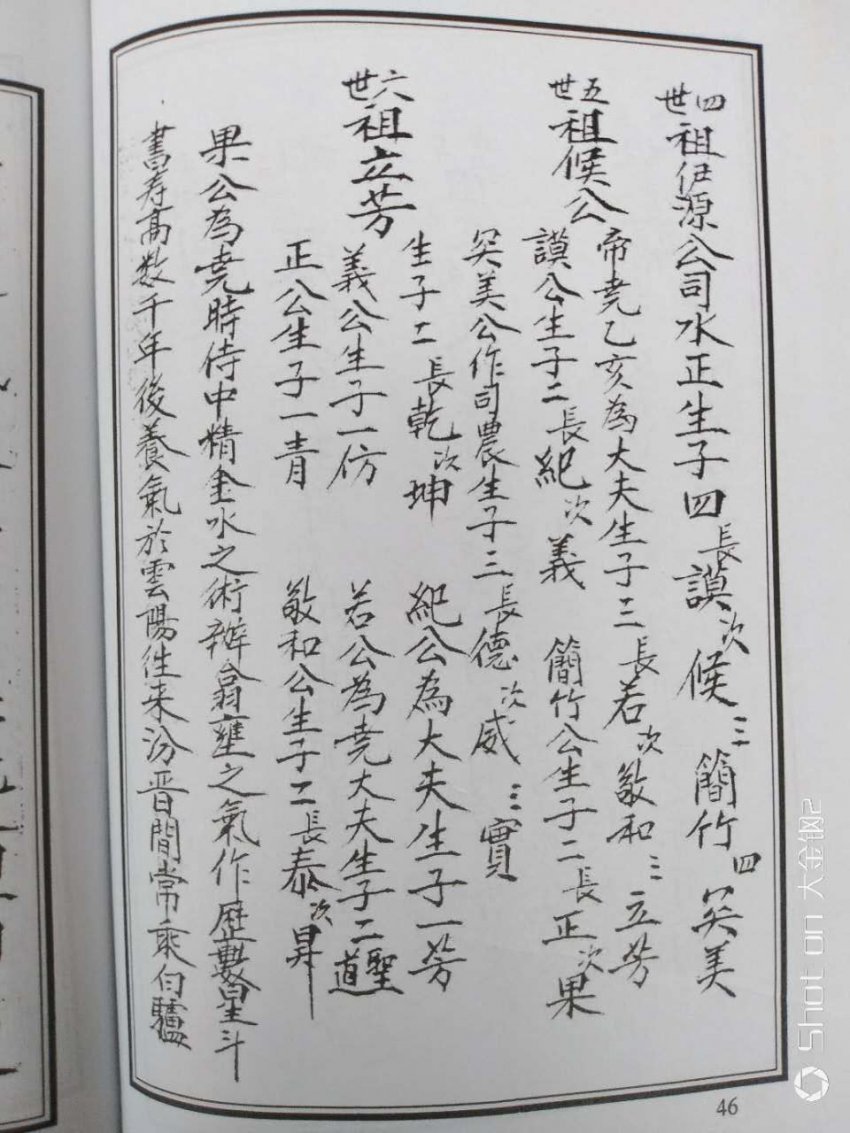 四世祖伊源公司水正生子四長謨次候三簡竹四昊美
五世祖候公帝堯乙亥為大夫生子三長若次敬和三立芳
謨公生子二長紀次義 簡竹公生子二長正次果
昊美公作司農生子三長德次威三實
六世祖立芳生子二長乾次坤 紀公為大夫生子一芳
義公生子一仿 若公為堯大夫生子二聖道
正公生子一青 敬和公生子二長泰次昇
果公為堯時侍中精金水之術辦翕壅之氣作歷數星斗
書寿高数千年後養氣於雲陽往来汾晋間常乘白驢
46
Shot on 大金钢2